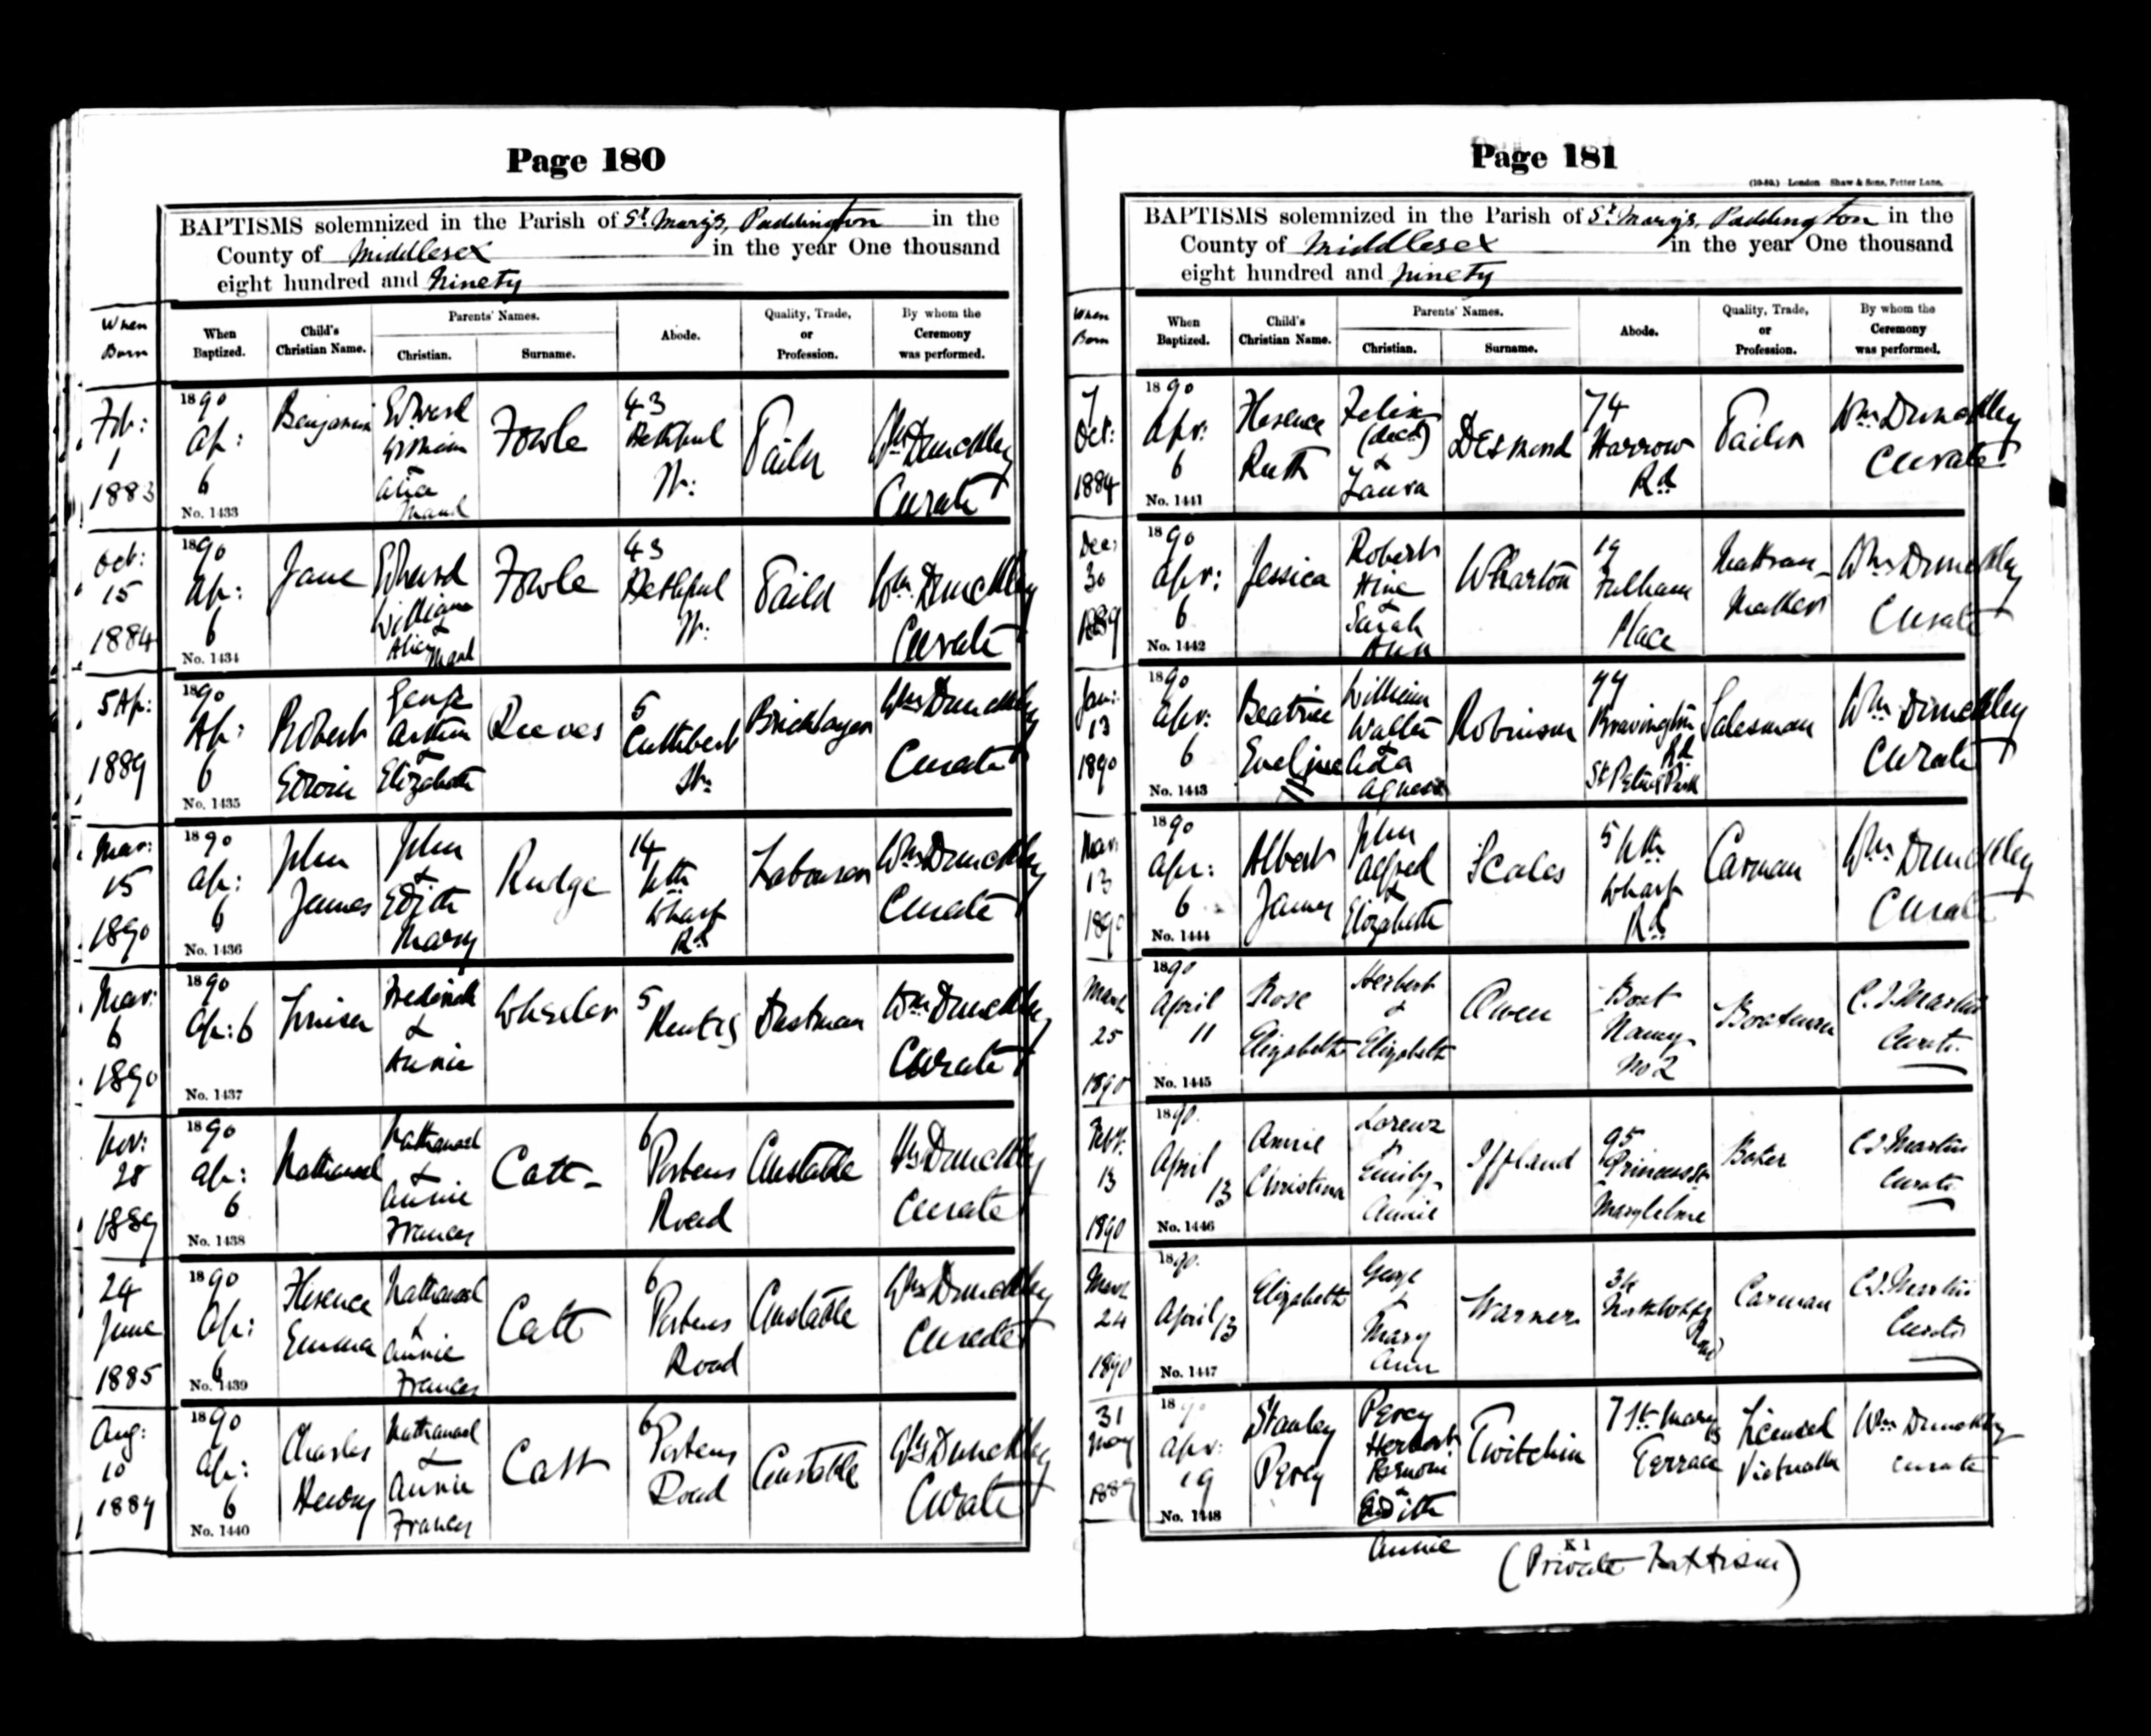 Page 180
BAPTISMS solemnized in the Parish of St. Mary's, Paddington in the
County of Middlesex in the year One thousand
eight hundred and Ninety
When Born
When Baptized.
Child's Christian Name.
Parents' Names.
Christian.
Surname.
Abode.
Quality, Trade, or Profession.
By whom the Ceremony was performed.
Feb: 1 1883
1890 Ap: 6
No. 1433
Benjamin
Edward William Alice Maud
Fowle
43
Tailor
Wm Dunckley Curate
Oct: 15 1884
1890 Ap: 6
No. 1434
Jane
Edward William & Alice Maud
Fowle
43
Tailor
Wm Dunckley Curate
5 Ap: 1889
1890 Ap: 6
No. 1435
Robert Edwin
George Arthur & Elizabeth
Reeves
5 Cuthbert St:
Bricklayer
Wm Dunckley Curate
Mar: 15 1890
1890 Ap: 6
No. 1436
John James
John & Edith Mary
Rudge
14 Nth Wharf Rd
Labourer
Wm Dunckley Curate
Mar: 6 1890
1890 Ap: 6
No. 1437
Louisa
Frederick & Annie
Wheeler
5
Dustman
Wm Dunckley Curate
Nov: 28 1889
1890 Ap: 6
No. 1438
Nathanael
Nathanael & Annie Frances
Catt
6 Porteus Road
Constable
Wm Dunckley Curate
24 June 1885
1890 Ap: 6
No. 1439
Florence Emma
Nathanael & Annie Frances
Catt
6 Porteus Road
Constable
Wm Dunckley Curate
Aug: 10 1887
1890 Ap: 6
No. 1440
Charles Henry
Nathanael & Annie Frances
Catt
6 Porteus Road
Constable
Wm Dunckley Curate
Page 181
(10-89.) London Shaw & Sons, Fetter Lane.
BAPTISMS solemnized in the Parish of St. Mary's, Paddington in the
County of Middlesex in the year One thousand
eight hundred and Ninety
When Born
When Baptized.
Child's Christian Name.
Parents' Names.
Christian.
Surname.
Abode.
Quality, Trade, or Profession.
By whom the Ceremony was performed.
7 Oct: 1884
1890 Apr: 6
No. 1441
Florence Ruth
Felix (decd) & Laura
Desmond
74 Harrow Rd
Tailor
Wm Dunckley Curate
Dec: 30 1889
1890 Apr: 6
No. 1442
Jessica
Robert Hine & Sarah Ann
Wharton
19 Fulham Place
Mattrass-Maker
Wm Dunckley Curate
Jan: 13 1890
1890 Apr: 6
No. 1443
Beatrice Eveline
William Walter & Ada Agness
Robinson
Bravington Rd St Peter's Park
Salesman
Wm Dunckley Curate
Mar: 13 1890
1890 Apr: 6
No. 1444
Albert James
John Alfred & Elizabeth
Scales
5 Nth Wharf Rd
Carman
Wm Dunckley Curate
March 25 1890
1890 April 11
No. 1445
Rose Elizabeth
Herbert & Elizabeth
Owen
Boat Nancy No 2
Boatman
C. J. Martin Curate.
Feby. 13 1890
1890. April 13
No. 1446
Annie Christina
Lorenz & Emily Annie
Iffland
95 Princess St Marylebone
Baker
C J Martin Curate
March 24 1890
1890. April 13
No. 1447
Elizabeth
George & Mary Ann
Warner
34 North Wharf Road
Carman
C J Martin Curate
31 May 1889
1890 Apr: 19
No. 1448
Stanley Percy
Percy Herbert & Edith Annie
Twitchin
7 St. Mary's Terrace
Licensed Victualler
Wm Dunckley Curate
K 1
(Private Baptism)